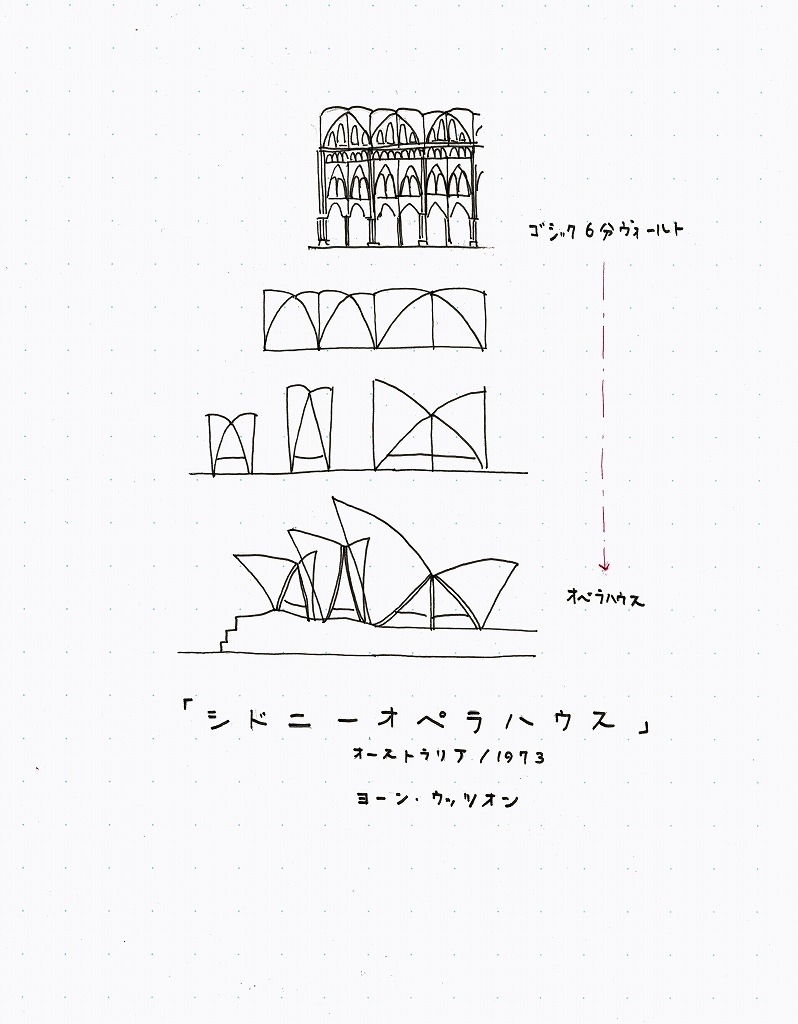 ゴシック6分ヴォールト
オペラハウス
「シドニーオペラハウス」
オーストラリア/1973
ヨーン・ウッツオン